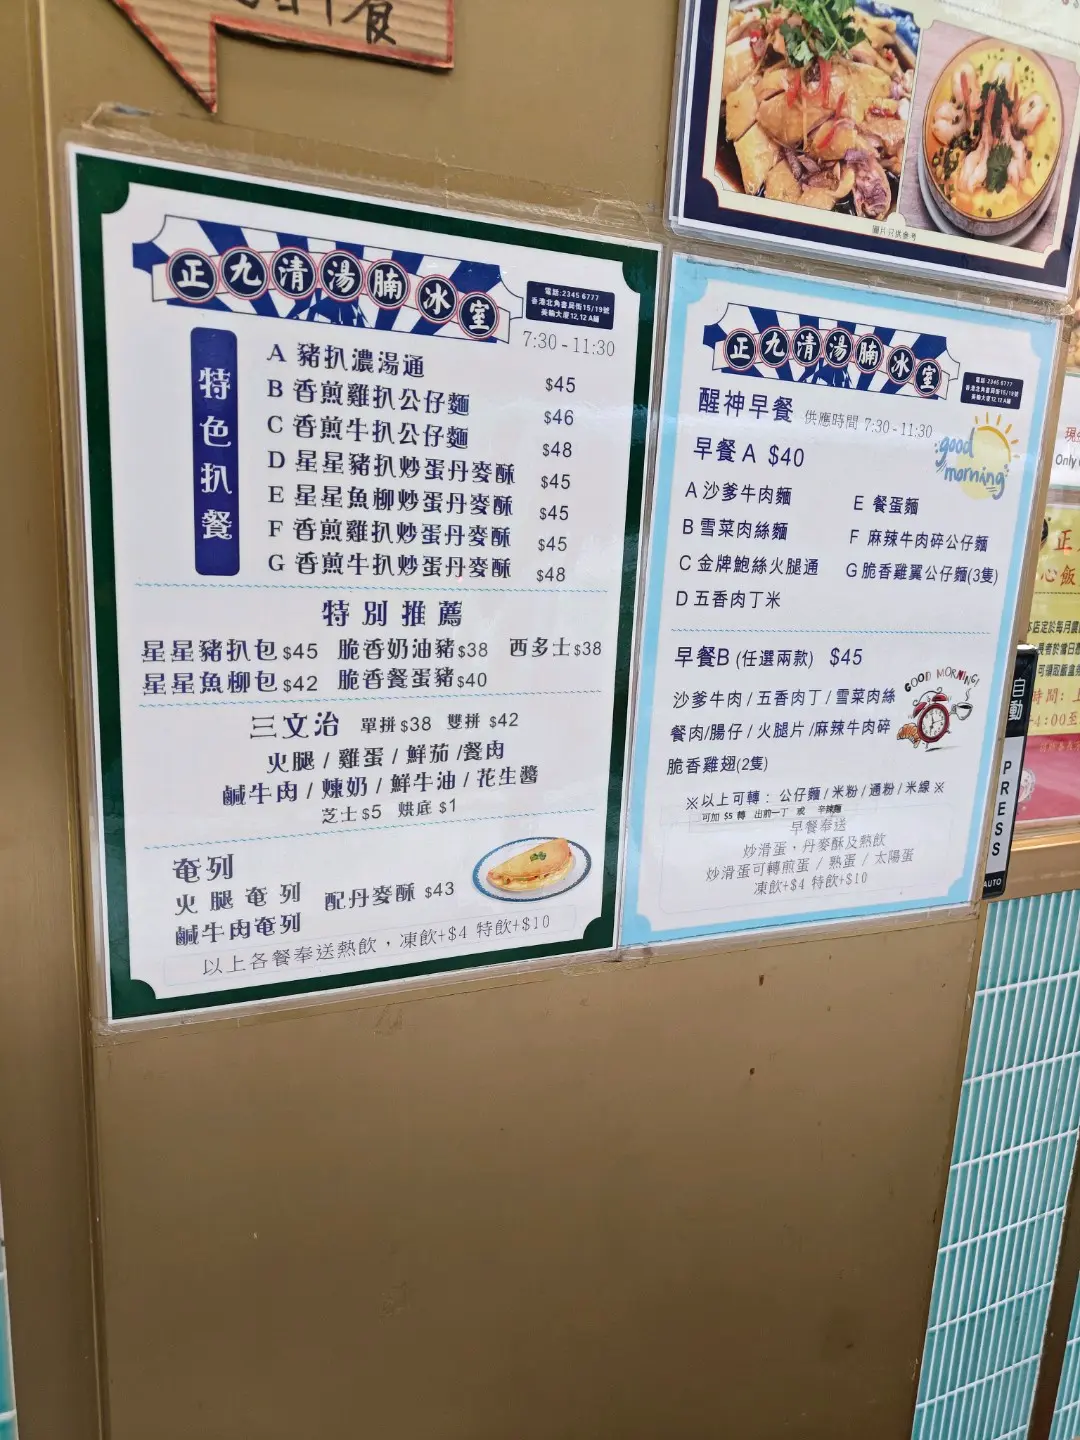 餐
圖片只供參考
正九清湯腩冰室
電話:2345 6777
香港北角書局街15/19號
美輪大廈12,12 A舖
7:30 - 11:30
特色扒餐
A 豬扒濃湯通 $45
B 香煎雞扒公仔麵 $46
C 香煎牛扒公仔麵 $48
D 星星豬扒炒蛋丹麥酥 $45
E 星星魚柳炒蛋丹麥酥 $45
F 香煎雞扒炒蛋丹麥酥 $45
G 香煎牛扒炒蛋丹麥酥 $48
特別推薦
星星豬扒包$45 脆香奶油豬$38 西多士$38
星星魚柳包$42 脆香餐蛋豬$40
三文治 單拼$38 雙拼$42
火腿 / 雞蛋 / 鮮茄 /餐肉
鹹牛肉 / 煉奶 / 鮮牛油 / 花生醬
芝士$5 烘底$1
奄列
火腿奄列 配丹麥酥 $43
鹹牛肉奄列
以上各餐奉送熱飲，凍飲+$4 特飲+$10
正九清湯腩冰室
電話:2345 6777
香港北角書局街15/19號
美輪大廈12,12 A舖
醒神早餐 供應時間 7:30 - 11:30
good morning
早餐A $40
A 沙爹牛肉麵 E 餐蛋麵
B 雪菜肉絲麵 F 麻辣牛肉碎公仔麵
C 金牌鮑絲火腿通 G 脆香雞翼公仔麵(3隻)
D 五香肉丁米
早餐B (任選兩款) $45
GOOD MORNING!
沙爹牛肉 / 五香肉丁 / 雪菜肉絲
餐肉/腸仔 / 火腿片 /麻辣牛肉碎
脆香雞翅(2隻)
※以上可轉：公仔麵 / 米粉 / 通粉 / 米線※
可加 $5 轉 出前一丁 或 辛辣麵
早餐奉送
炒滑蛋，丹麥酥及熱飲
炒滑蛋可轉煎蛋 / 熟蛋 / 太陽蛋
凍飲+$4 特飲+$10
Only
正
心飯
自動
PRESS
AUTO